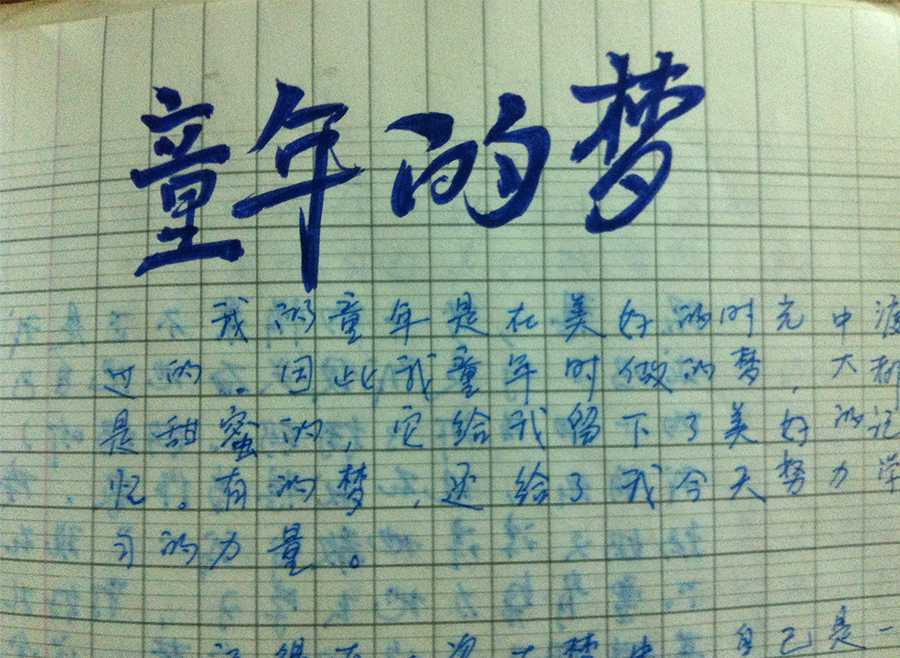 童年的梦
我的童年是在美好的时光中渡
过的。因此我童年时做的梦，大都
是甜蜜的，它给我留下了美好的记
忆。有的梦，还给了我今天努力学
习的力量。
记得在一次梦中，自己是一